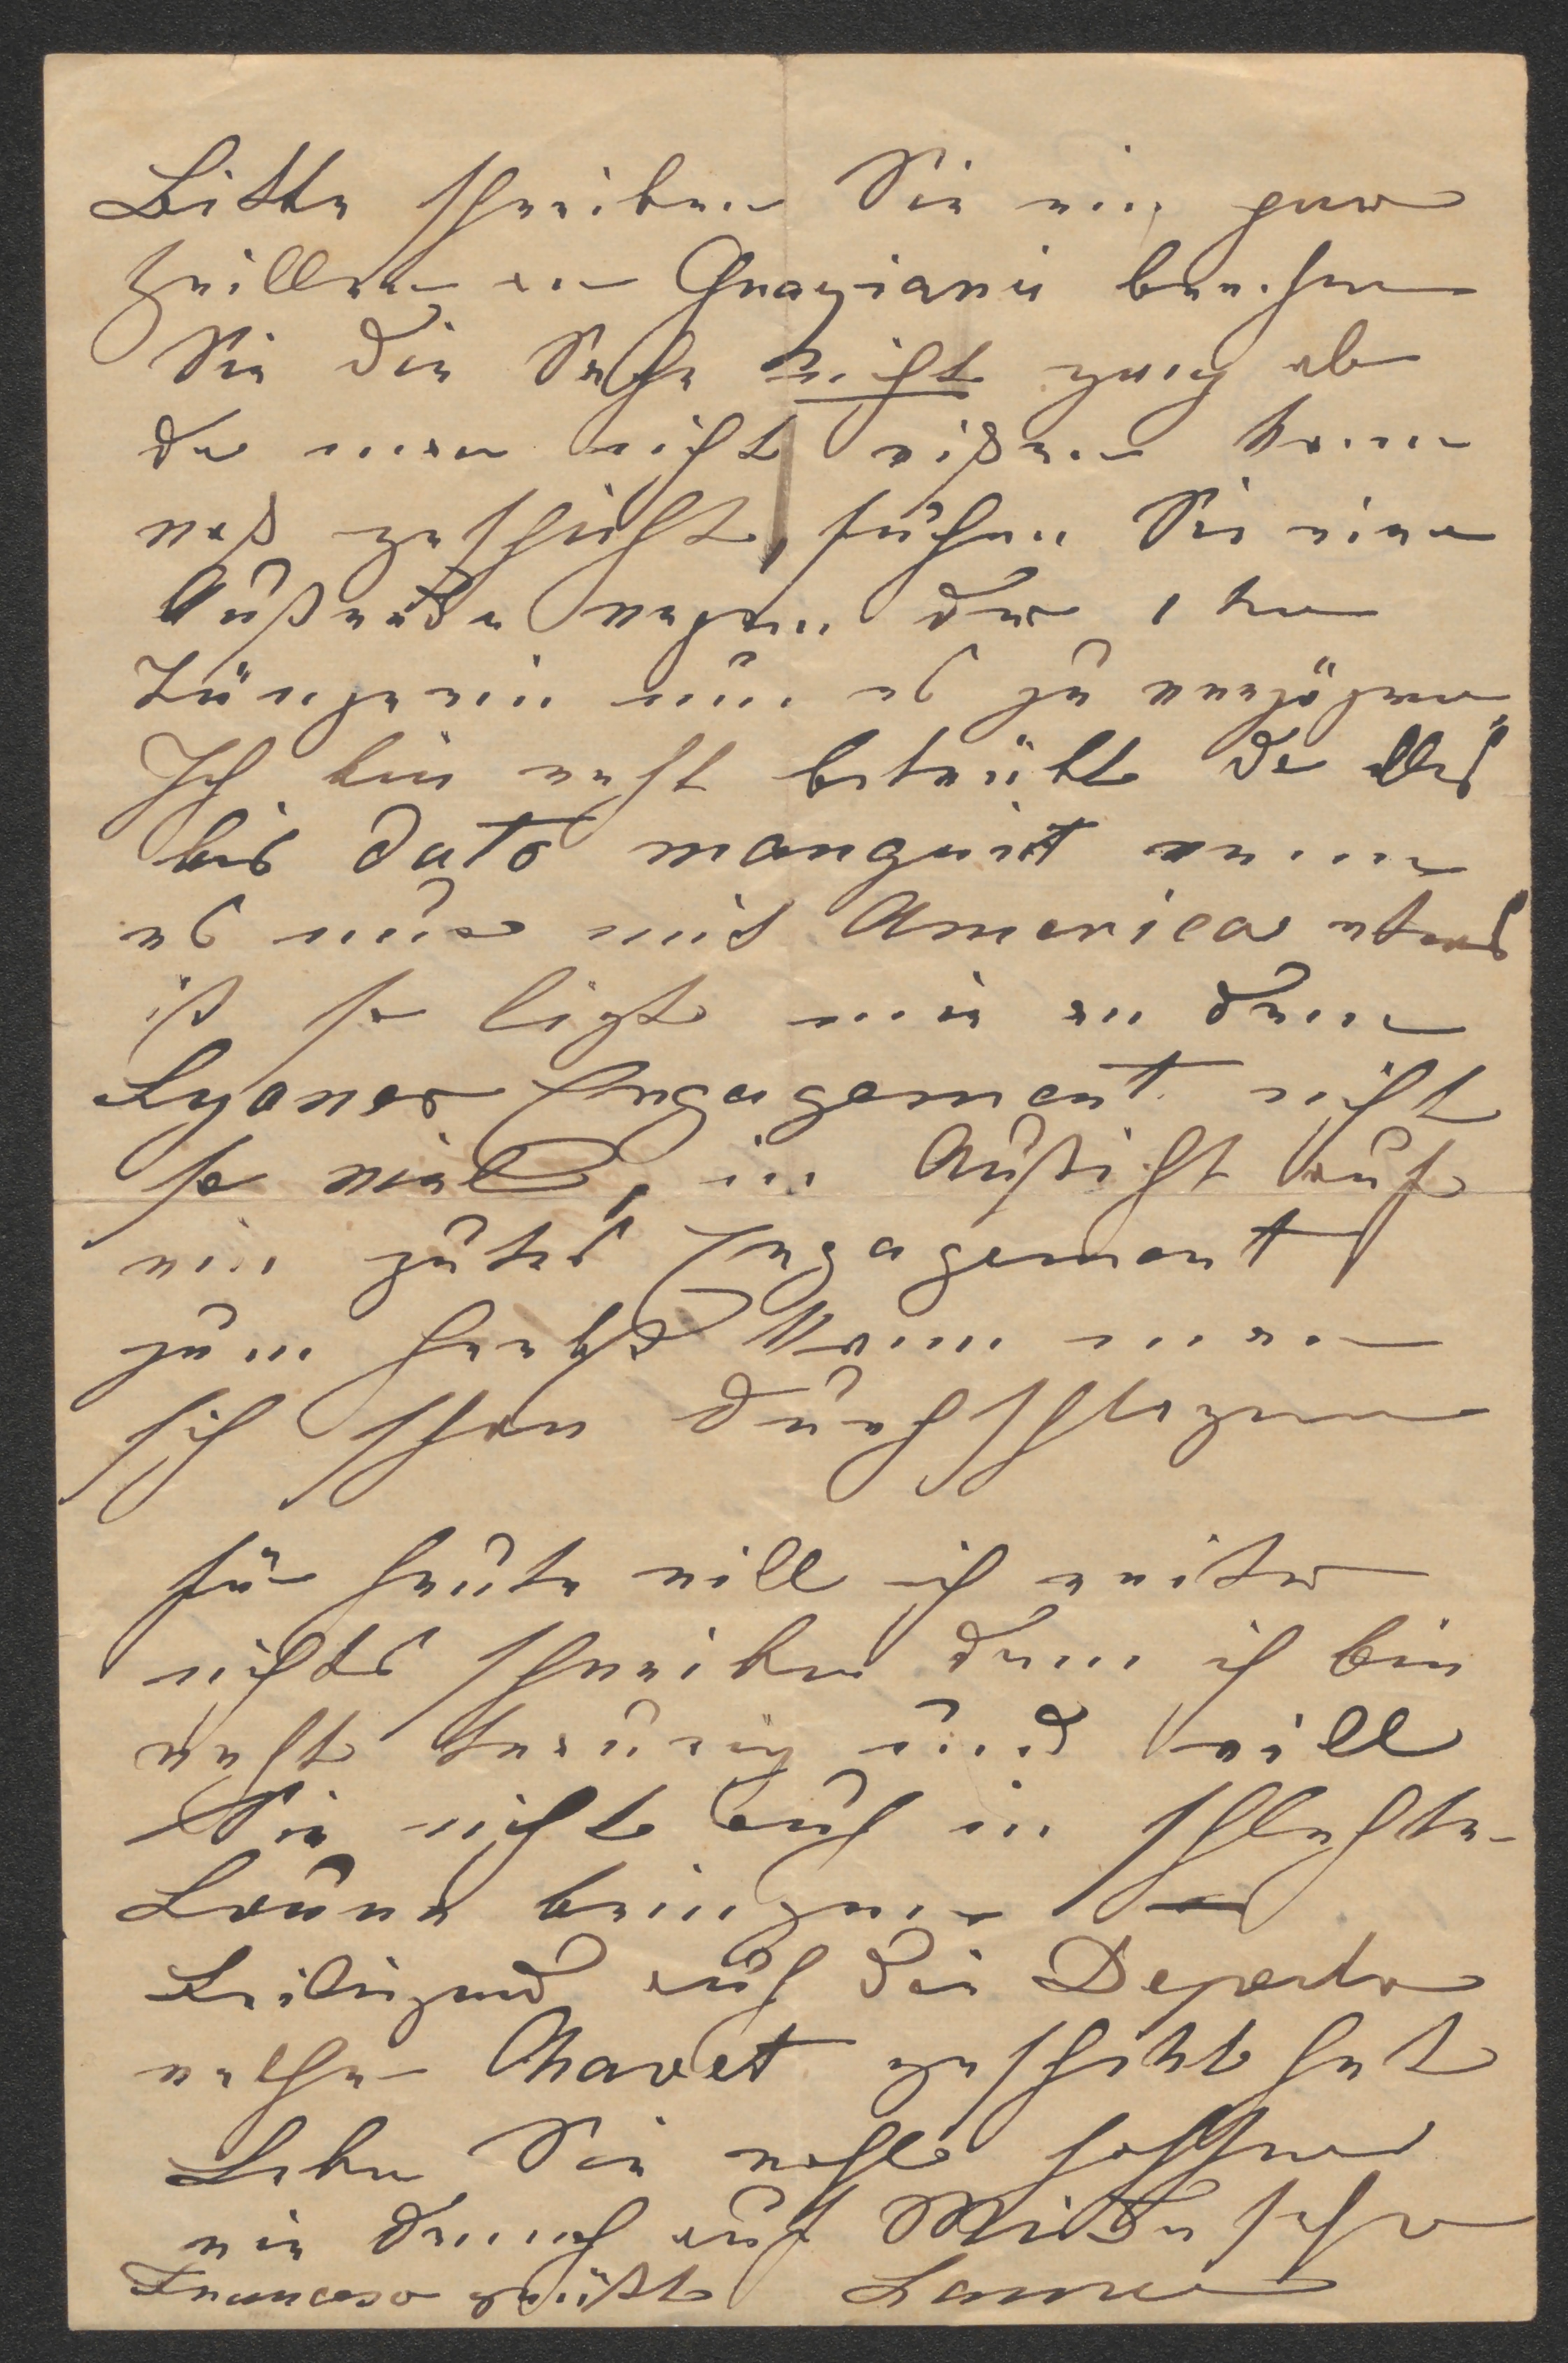 Bitte schreiben Sie ein paar
Zeillen an Graziani brechen
Sie die Sache nicht ganz ab
da man nicht wißen kann
was geschieht, suchen Sie eine
Außrede wegen der 1ten
Tänzerin um es zu verzögern
Ich bin recht betrübt da alles
bis dato manquirt wenn
es nur mit America etwas
ist so ligt mir an dem
Lyoner Engagement nicht
so viel, in Außicht auf
ein gutes Engagement
zum Herbst kann man
sich schon durchschlagen
für heute will ich weiter
nichts schreiben denn ich bin
recht traurig und will
Sie nicht auch in schlechte
Laune bringen
Beiligend auch die Depesche
welche Chavet geschikt hat
Leben Sie wohl hoffen
wir dennoch auf Wiedersehn
Francesco grüßt Laura